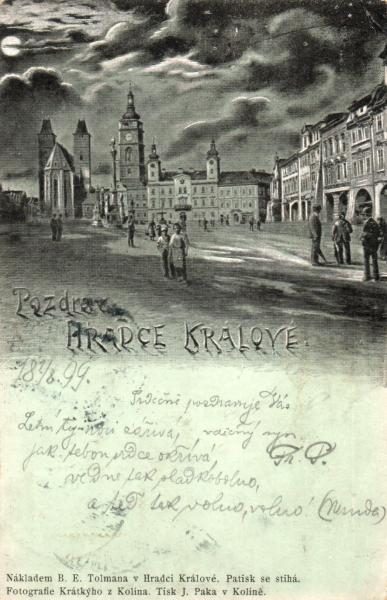 Pozdrav z
HRADCE KRÁLOVÉ.
18 7/8 99.
Srdečně pozdravuje Vás
Letní ty noci zářivá, vděčný syn
jak tebou srdce okřívá Fr. P.
ve dne tak sladkobolno,
a teď tak volno, volno! (Neruda)
Nákladem B. E. Tolmana v Hradci Králové. Patisk se stíhá.
Fotografie Krátkýho z Kolína. Tisk J. Paka v Kolíně.